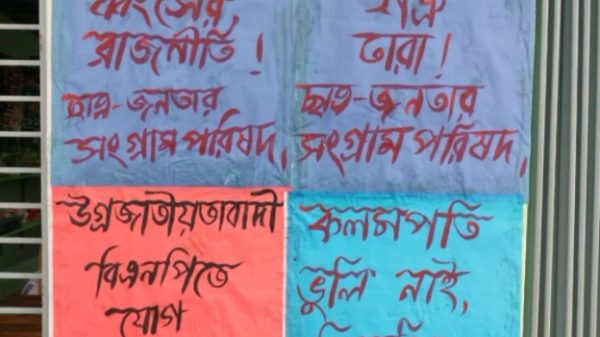 ধ্বংসের,
রাজনীতি!
ছাত্র-জনতার
সংগ্রাম পরিষদ,
শত্রু
তারা!
ছাত্র-জনতার
সংগ্রাম পরিষদ,
উগ্রজাতীয়তাবাদী
বিএনপিতে
যোগ
কলমপতি
ভুলি নাই,